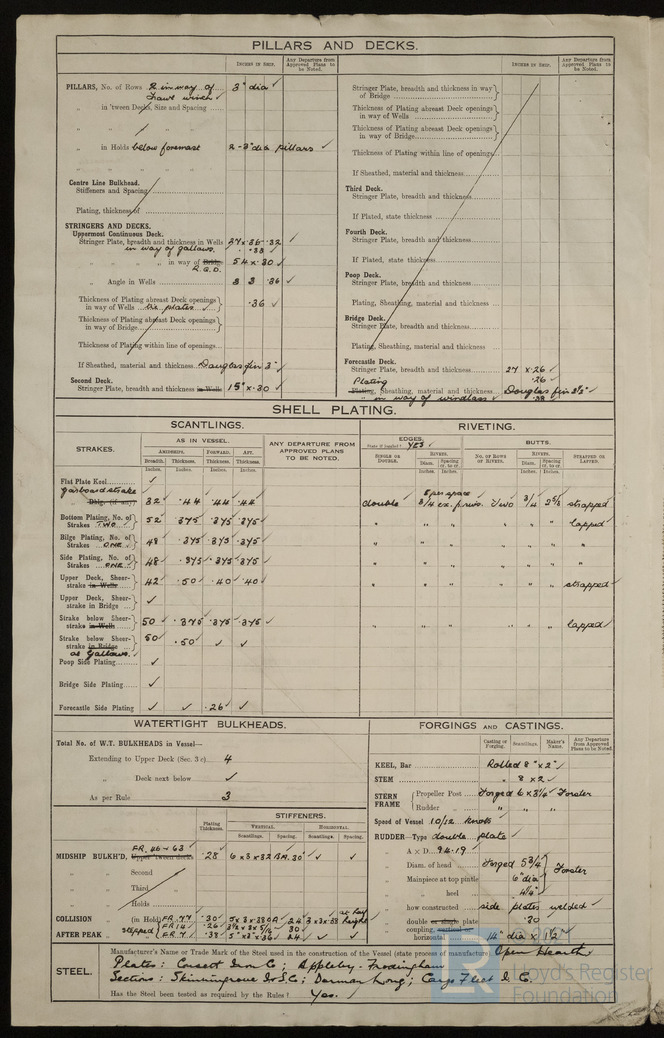 PILLARS AND DECKS.
INCHES IN SHIP.
Any Departure from Approved Plans to be Noted.
PILLARS, No. of Rows 2 in way of Trawl winch 3" dia ✓
„ in 'tween Decks, Size and Spacing
„ in Holds below foremast 2 - 3" dia pillars ✓
Centre Line Bulkhead.
Stiffeners and Spacing
Plating, thickness of
STRINGERS AND DECKS.
Uppermost Continuous Deck.
Stringer Plate, breadth and thickness in Wells 27 x .36 - .32 ✓
in way of gallows. .38
„ „ „ „ in way of Bridge R.Q.D. 54 x .30 ✓
„ Angle in Wells 3 3 .36 ✓
Thickness of Plating abreast Deck openings in way of Wells tie plates ✓ .36 ✓
Thickness of Plating abreast Deck openings in way of Bridge
Thickness of Plating within line of openings
If Sheathed, material and thickness Douglas fir 3" ✓
Second Deck.
Stringer Plate, breadth and thickness in Wells 15" x .30 ✓
INCHES IN SHIP.
Any Departure from Approved Plans to be Noted.
Stringer Plate, breadth and thickness in way of Bridge
Thickness of Plating abreast Deck openings in way of Wells
Thickness of Plating abreast Deck openings in way of Bridge
Thickness of Plating within line of openings
If Sheathed, material and thickness
Third Deck.
Stringer Plate, breadth and thickness
If Plated, state thickness
Fourth Deck.
Stringer Plate, breadth and thickness
If Plated, state thickness
Poop Deck.
Stringer Plate, breadth and thickness
Plating, Sheathing, material and thickness
Bridge Deck.
Stringer Plate, breadth and thickness
Plating, Sheathing, material and thickness
Forecastle Deck.
Stringer Plate, breadth and thickness 27 x .26 ✓
Plating .26 ✓
Plating, Sheathing, material and thickness Douglas fir 2½" ✓
„ in way of windlass ✓ .38
SHELL PLATING.
SCANTLINGS.
RIVETING.
STRAKES.
AS IN VESSEL.
ANY DEPARTURE FROM APPROVED PLANS TO BE NOTED.
EDGES. YES ✓
BUTTS.
AMIDSHIPS. FORWARD. AFT.
Breadth. Thickness. Thickness. Thickness.
Inches. Inches. Inches. Inches.
SINGLE OR DOUBLE.
RIVETS.
Diam. Spacing cr. to cr.
NO. OF ROWS OF RIVETS.
RIVETS.
Diam. Spacing cr. to cr.
STRAPPED OR LAPPED.
Inches. Inches. Inches. Inches.
Flat Plate Keel ✓
garboard strake
Dblg. (if any) 32 ✓ .44 .44 .44 double 3/4 two 3/4 2 5/8 strapped
Bottom Plating, No. of Strakes TWO 52 ✓ .375 .375 .375 " " " " " " lapped
Bilge Plating, No. of Strakes ONE 48 ✓ .375 .375 .375 " " " " " " "
Side Plating, No. of Strakes ONE 48 ✓ .375 .375 .375 " " " " " " "
Upper Deck, Sheerstrake in Wells 42 ✓ .50 .40 .40 " " " " " " strapped
Upper Deck, Sheerstrake in Bridge ✓
Strake below Sheerstrake in Wells 50 ✓ .375 .375 .375 " " " " " " lapped
Strake below Sheerstrake in Bridge 50 ✓ .50 ✓ ✓ ✓
at Gallows.
Poop Side Plating ✓
Bridge Side Plating ✓
Forecastle Side Plating ✓ ✓ .26 ✓ ✓
WATERTIGHT BULKHEADS.
Total No. of W.T. BULKHEADS in Vessel—
Extending to Upper Deck (Sec. 3 c) 4
„ Deck next below ✓
As per Rule 3
Plating Thickness.
STIFFENERS.
VERTICAL. HORIZONTAL.
Scantlings. Spacing. Scantlings. Spacing.
FR. 46 - 63
MIDSHIP BULKH'D, Upper 'tween decks .28 6 x 3 x .32 B.A. 30 ✓ ✓
„ Second
„ Third
„ Holds
COLLISION „ (in Hold) FR. 77 .30 24 at half height
stepped FR 14 .26 30
AFTER PEAK „ FR 7 .38 5" x 3" x .36 24 ✓ ✓
FORGINGS AND CASTINGS.
Casting or Forging. Scantlings. Maker's Name. Any Departure from Approved Plans to be Noted.
KEEL, Bar Rolled 8" x 2" ✓
STEM „ 8 x 2 ✓
STERN FRAME { Propeller Post Forged 6 x 3¼" Forster
Rudder „ „ „ „
Speed of Vessel 10/12 knots
RUDDER—Type double plate ✓
„ A x D 94.19 ✓
„ Diam. of head Forged 5 3/4
„ Mainpiece at top pintle 6" dia } Forster
„ „ heel 4¼"
„ how constructed side plates welded ✓
„ double or single plate .30
„ coupling, vertical or horizontal
STEEL.
Manufacturer's Name or Trade Mark of the Steel used in the construction of the Vessel (state process of manufacture) Open Hearth
Plates: Consett Iron Co; Appleby-Frodingham
Sections: Skinningrove I & S Co; Dorman Long; Cargo Fleet I. Co.
Has the Steel been tested as required by the Rules? Yes.
© 2021
Lloyd's Register
Foundation